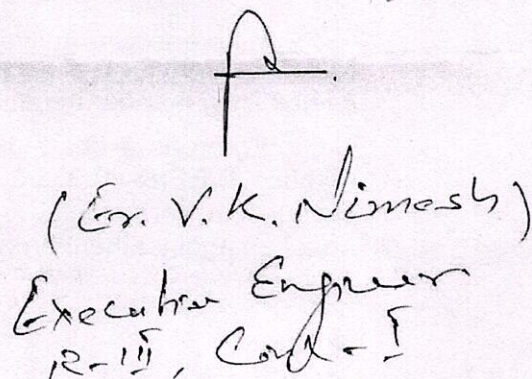 (Er. V. K. Nimesh)
Executive Engineer
R-III, Cond-I